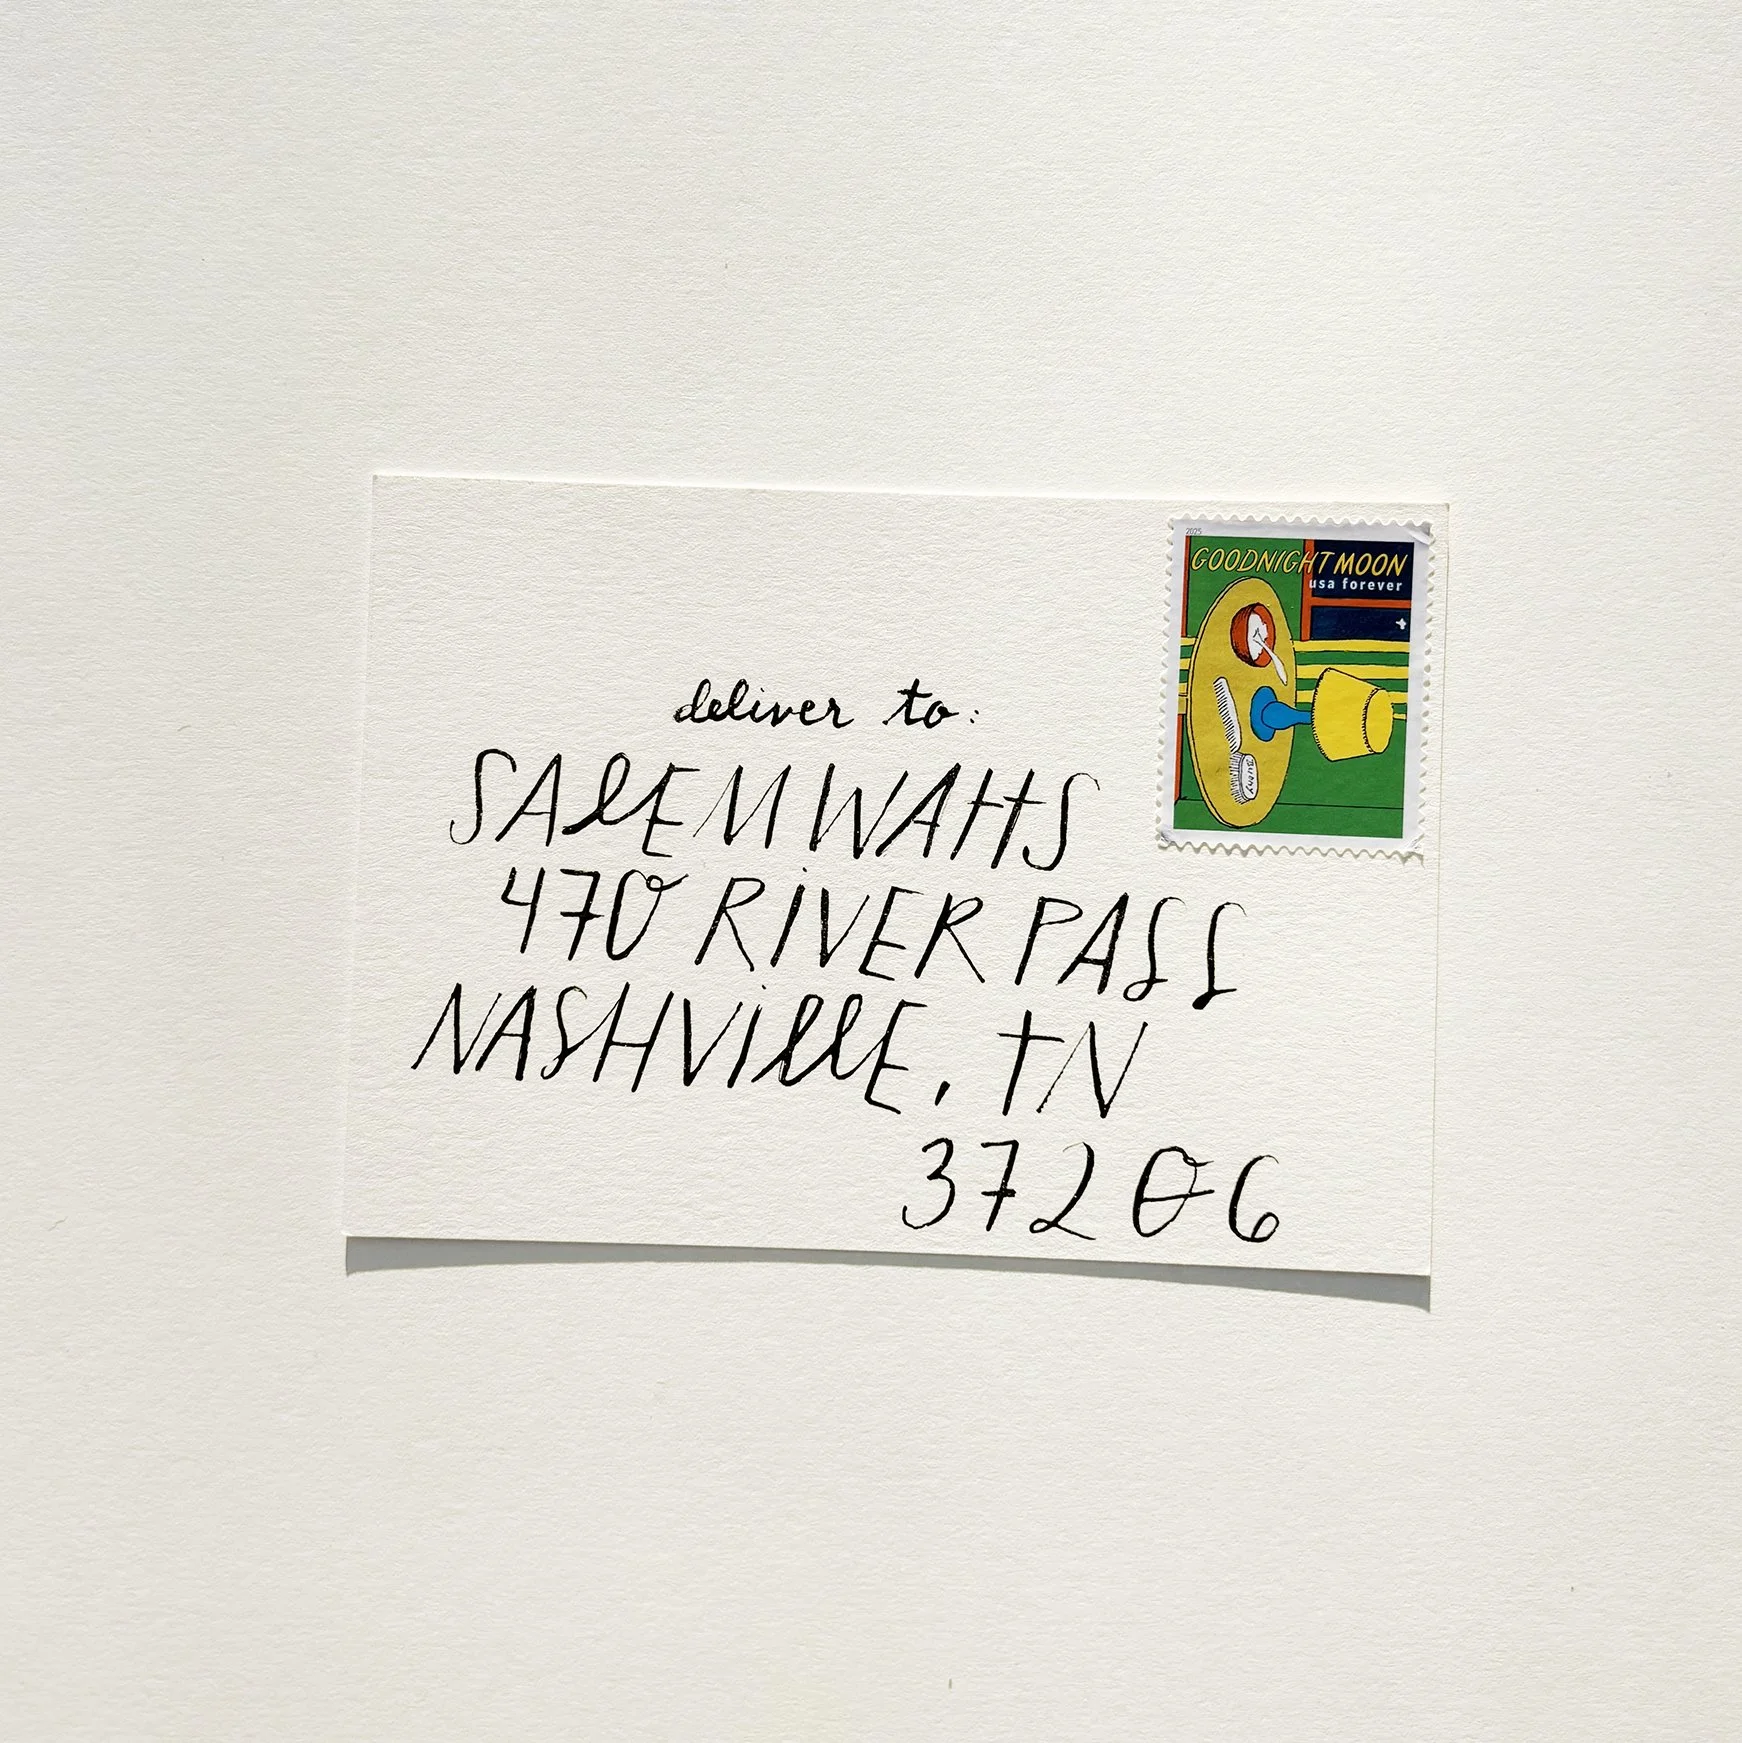 2025
GOODNIGHT MOON
usa forever
Bunny
deliver to:
SALEM WAHS
470 RIVER PASS
NASHVILLE, TN
37206